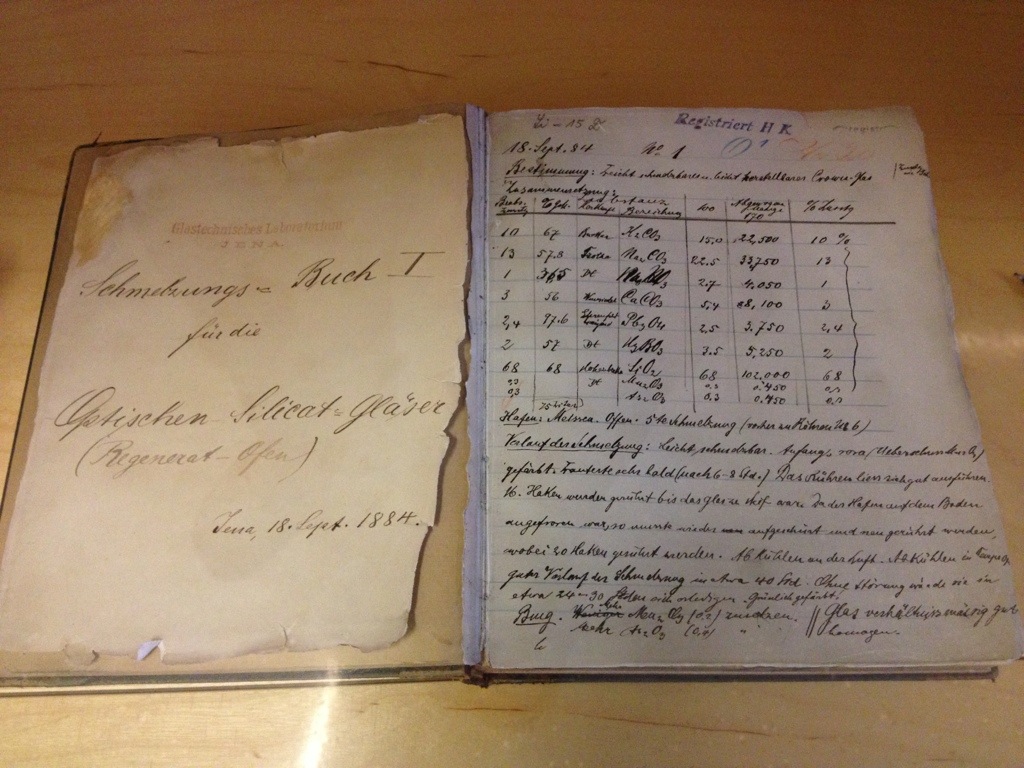 Glastechnisches Laboratorium
JENA.
Schmelzungs= Buch I
für die
Optischen Silicat=Gläser
(Regenerat-Ofen)
Jena, 18. Sept. 1884.
Registriert H K
18. Sept. 84 No 1
Bestimmung: Leicht schmelzbares leicht herstellbares Crown-Glas
Zusammensetzung:
Substanz
Bezeichnung 100 170 %
10 67 K2CO3 15.0 22,500 10 %
13 57.8 Na2CO3 22.5 33,750 13
1 36,5 Dt 2.7 4,050 1
3 56 CaCO3 5.4 8,100 3
2,4 97.6 Pb3O4 2.5 3.750 2,4
2 57 Dt H3BO3 3.5 5,250 2
68 68 SiO2 68 102,000 68
0,3 Dt Mn2O3 0,3 0.450 0,3
0,3 As2O3 0.3 0.450 0,3
Hafen: Meissen. Offen. 5te Schmelzung
Verlauf der Schmelzung: Leicht schmelzbar. Anfangs rosa
gefärbt. Lauterte sehr bald (nach 6-8 Std.) Das Rühren liess sich gut ausführen.
16. Haken wurden gerührt bis das Glas steif war. Da der Hafen auf dem Boden
angefroren war, so musste wieder aufgeschürt und neu gerührt werden,
wobei 20 Haken gerührt wurden. Abkühlen an der Luft. Abkühlen in
Verlauf der Schmelzung in etwa 40 Std. Ohne Störung würde sie in
etwa 24-30 Stden sich erledigen. Grünlich gefärbt.
Bmg. Mehr Mn2O3 (0,2) zusetzen. || Glas verhältnissmässig gut
Mehr As2O3 " homogen.